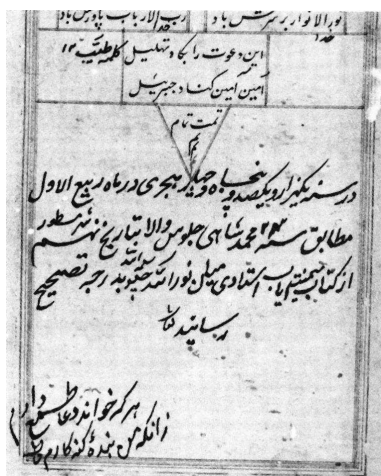 نورالانوار بر سرش باد
رب الارباب یاورش باد
این دعوت را بجا و تهلیل کلمه طیبه ۱۲
آمین آمین کناد جبریل
تمت تمام
در سنه یکهزار و یکصد و پنجاه و چهار هجری در ماه ربیع الاول
مطابق سنه ۲۴ محمد شاهی جلوس والا بتاریخ نهم شهر مسطور
از کتاب استادی میان نور الله جیو بدرجه تصحیح
رسانید
هر که خواند دعا طمع دارم
زانکه من بنده گنه کارم